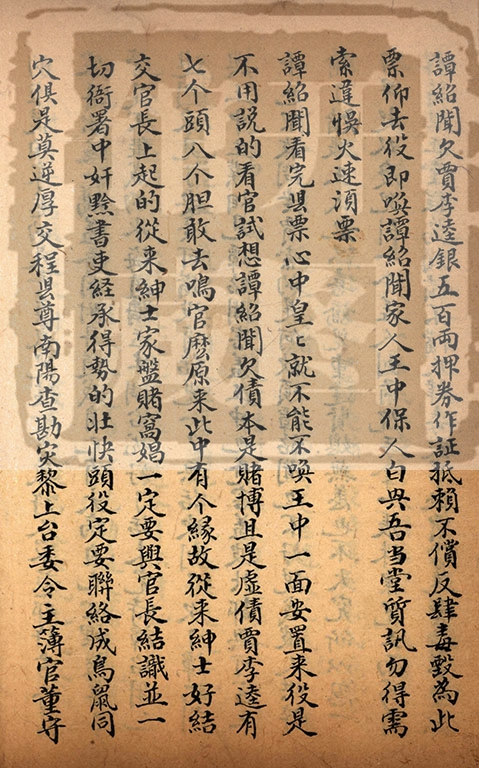 譚紹聞欠賈李逵銀五百兩押券作証抵賴不償反肆毒毆為此
票仰去役即喚譚紹聞家人王中保人白興吾当堂質訊勿得需
索違悞火速湏票
譚紹聞看完县票心中皇〻就不能不喚王中一面安置来役是
不用説的看官試想譚紹聞欠債本是賭博且是虚債賈李逵有
七个頭八个胆敢去鳴官麽原来此中有个緣故從来紳士好結
交官長上起的從来紳士家盤賭窩娼一定要與官長結識並一
切衙署中奸黠書吏経承得勢的壮快頭役定要聯絡成鳥鼠同
穴俱是莫逆厚交程县尊南陽查勘灾黎上台委令主薄官董守